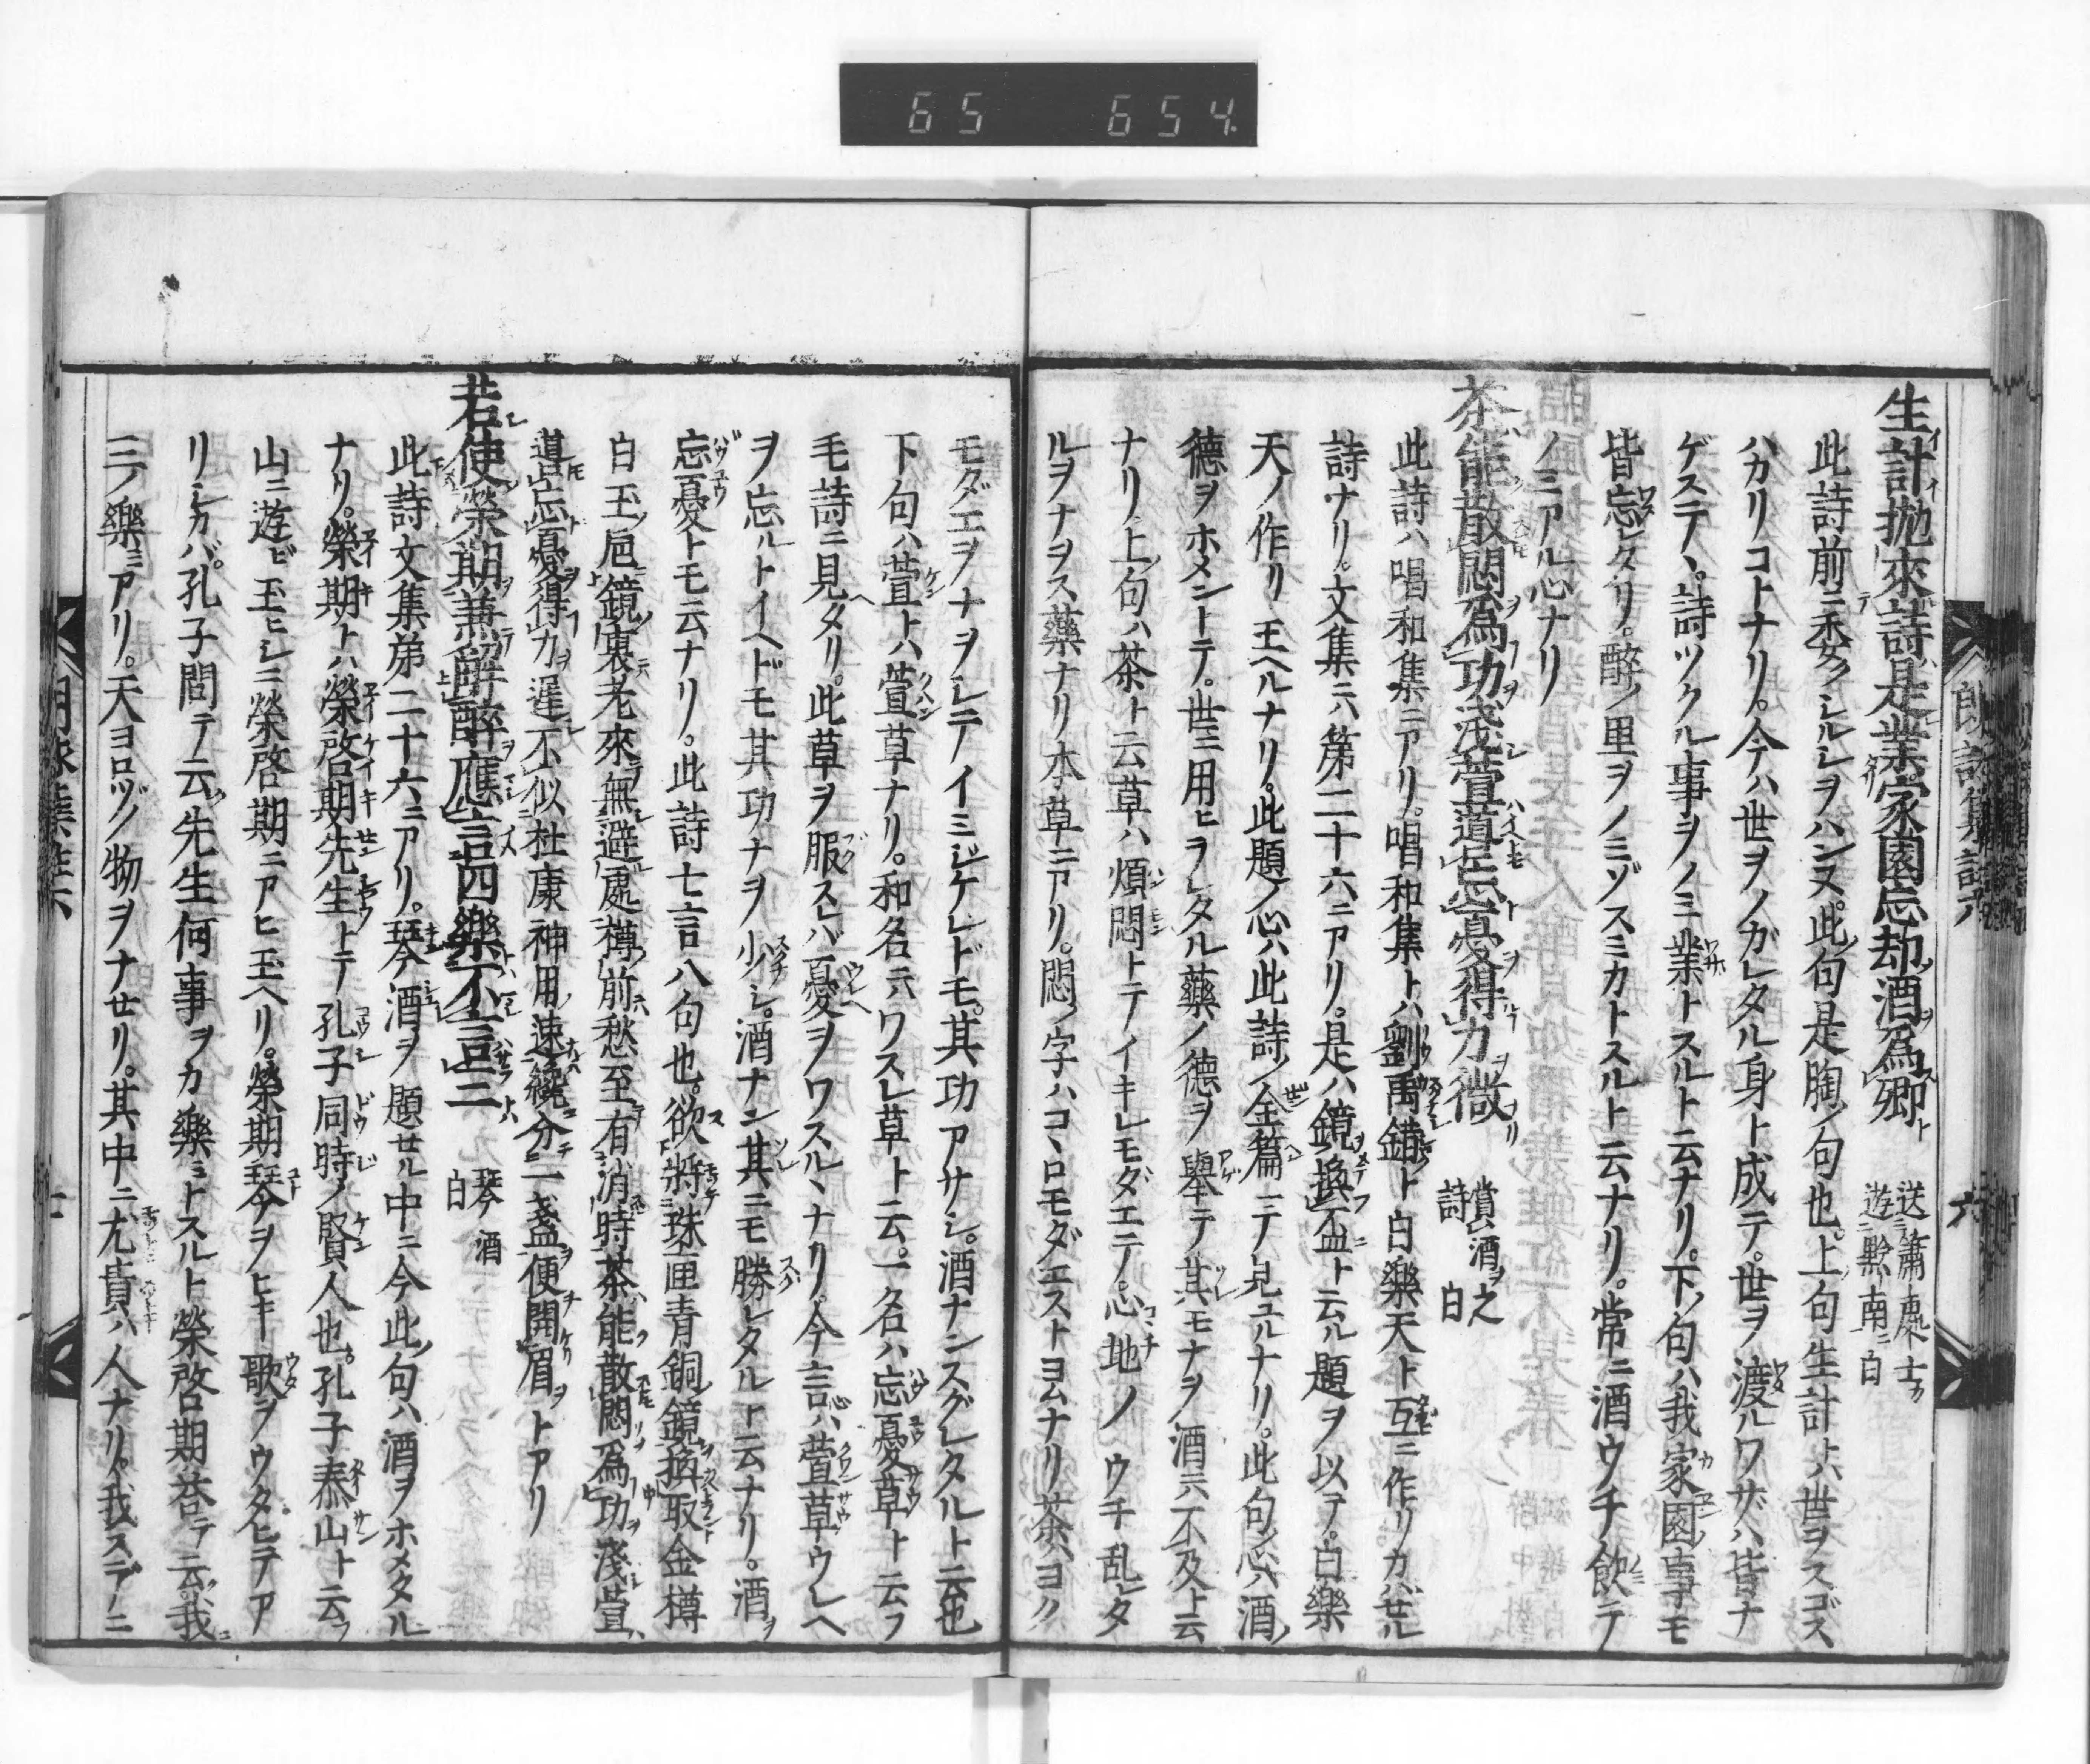 65 654
朗詠集註六 六
生計抛來詩是業家園忘却酒爲郷 送蕭處士遊黔南 白
此詩前ニ委クシルシヲハンヌ此句是胸ノ句也上句生計トハ世ヲスゴス
ハカリコトナリ。今ハ世ヲノガレタル身ト成テ。世ヲ渡ルワザハ皆ナ
ゲステヽ。詩ツクル事ヲノミ業トスルト云ナリ。下ノ句ハ我家園ノ事モ
皆忘レタリ。醉ノ里ヲノミゾスミカトスルト云ナリ。常ニ酒ウチ飲テ
ノミアル心ナリ
茶能散悶爲功淺萱道忘憂得力微 賞酒之詩 白
此詩ハ唱和集ニアリ。唱和集トハ劉禹錫ト白樂天ト互ニ作リカハセル
詩ナリ。文集ニハ第二十六ニアリ。是ハ鏡換盃ト云ル題ヲ以テ。白樂
天ノ作リ玉ヘルナリ。此題ノ心ハ此詩ノ全篇ニテ見ユルナリ。此句ノ心ハ酒ノ
德ヲホメントテ。世ニ用ヒラレタル藥ノ德ヲ擧テ其モナヲ酒ニハ不及ト云
ナリ上ノ句ハ茶ト云草ハ煩悶トテイキレモダエテ。心地ノウチ乱レタ
ルヲナヲス藥ナリ本草ニアリ。悶ノ字ハコヽロモダエストヨムナリ茶ハヨク
モダエヲナヲシテイミジケレドモ。其功アサシ。酒ナンスグレタルト云也
下句ハ萱トハ萱草ナリ。和名ニハワスレ草ト云。一名ハ忘憂草ト云フ
毛詩ニ見ヘタリ。此草ヲ服スレバ憂ヲワスルヽナリ。今言心ハ萱草ウレヘ
ヲ忘ルトイヘドモ其功ナヲ少シ。酒ナン其ニモ勝レタルト云ナリ。酒ヲ
忘憂トモ云ナリ。此詩七言八句也。欲將珠匣青銅鏡換取金樽
白玉ノ巵鏡裏老來無避處樽前愁至有消時茶能散悶爲功淺萱
道忘憂得力遲不似杜康神用速纔分一盞便開眉トアリ
若使榮期兼解醉應言四樂不言三 琴酒 白
此詩文集第二十六ニアリ。琴酒ヲ題セル中ニ今此ノ句ハ酒ヲホメタル
ナリ。榮期トハ榮啓期先生トテ孔子同時ノ賢人也。孔子泰山ト云フ
山ニ遊ビ玉ヒシニ榮啓期ニアヒ玉ヘリ。榮期琴ヲヒキ歌ヲウタヒテア
リシカバ。孔子問テ云先生何事ヲカ樂ミトスルト榮啓期答テ云我ニ
三ノ樂ミアリ。天ヨロヅノ物ヲナセリ。其中ニ尤貴ハ人ナリ。我スデニ